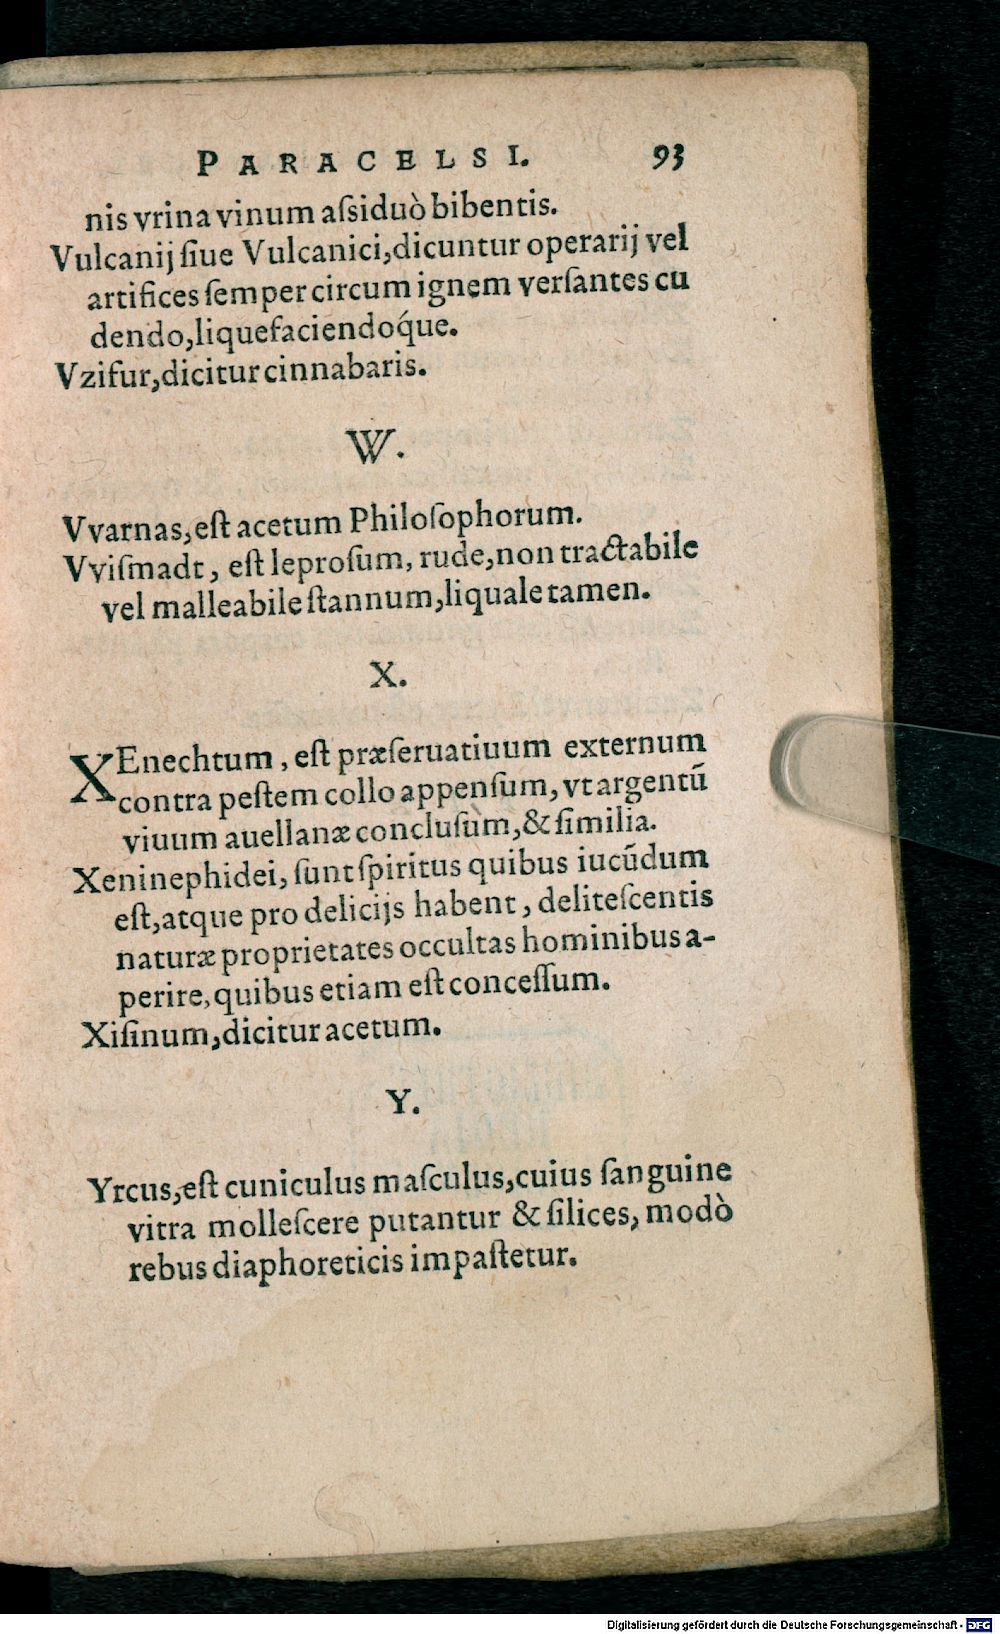 PARACELSI. 93
nis vrina vinum aſsiduò bibentis.
Vulcanij ſiue Vulcanici, dicuntur operarij vel
artifices ſemper circum ignem verſantes cu
dendo, liquefaciendoq́ue.
Vzifur, dicitur cinnabaris.
W.
Vvarnas, eſt acetum Philoſophorum.
Vviſmadt, eſt leproſum, rude, non tractabile
vel malleabile ſtannum, liquale tamen.
X.
XEnechtum, eſt præſeruatiuum externum
contra peſtem collo appenſum, vt argentũ
viuum auellanæ concluſum, & ſimilia.
Xeninephidei, ſunt ſpiritus quibus iucũdum
eſt, atque pro delicijs habent, deliteſcentis
naturæ proprietates occultas hominibus a-
perire, quibus etiam eſt conceſſum.
Xiſinum, dicitur acetum.
Y.
Yrcus, eſt cuniculus maſculus, cuius ſanguine
vitra molleſcere putantur & ſilices, modò
rebus diaphoreticis impaſtetur.
Digitalisierung gefördert durch die Deutsche Forschungsgemeinschaft - DFG